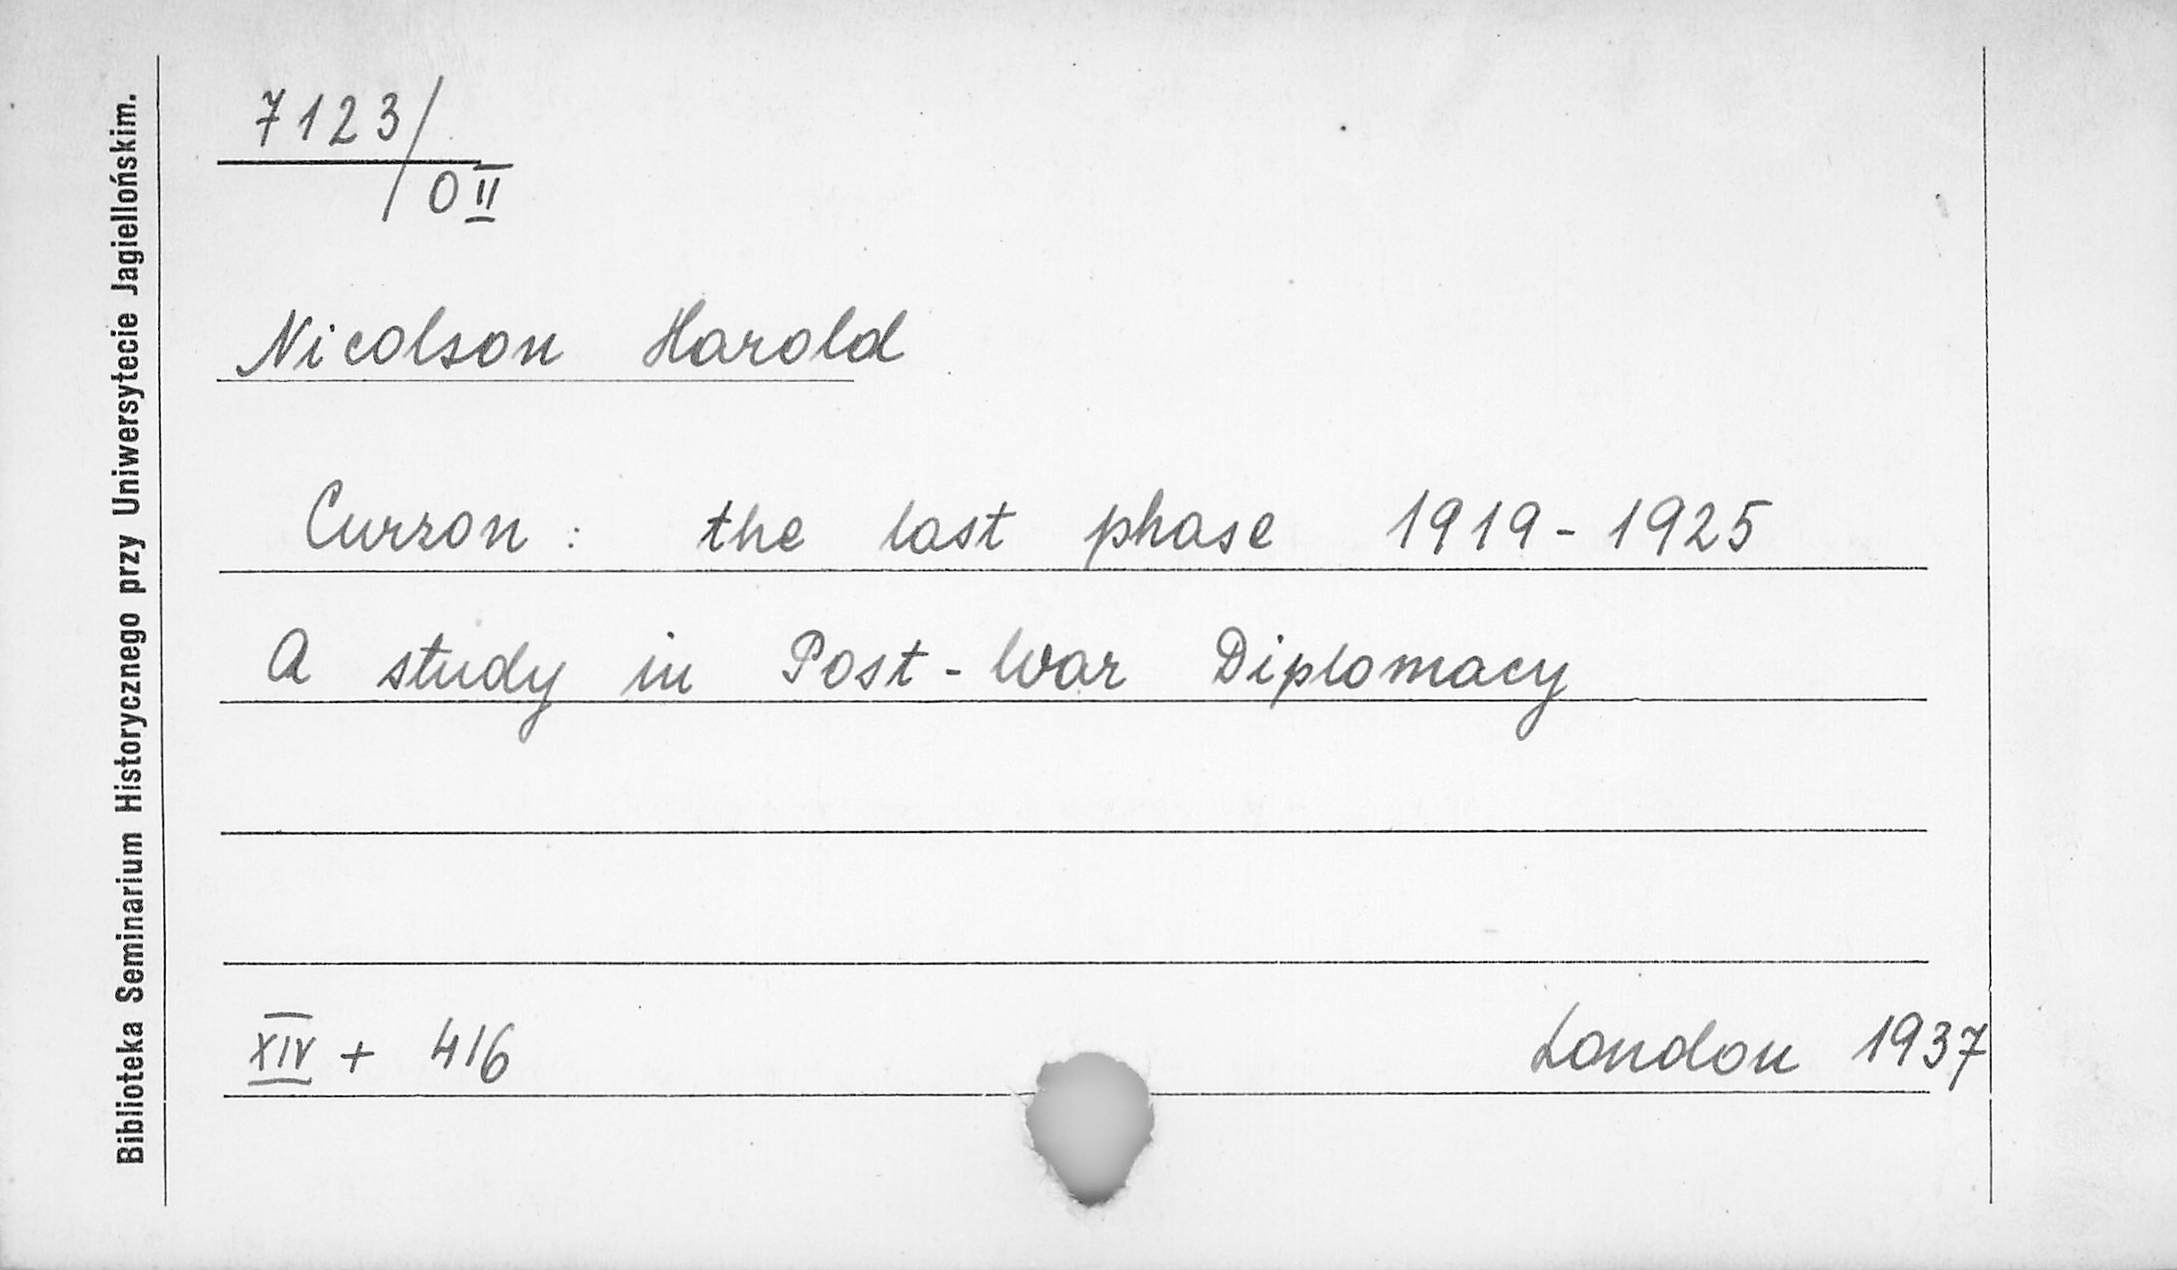 Biblioteka Seminarium Historycznego przy Uniwersytecie Jagiellońskim.
7123/
0 II
Nicolson Harold
Curzon: the last phase 1919-1925
A study in Post-War Diplomacy
XIV + 416
London 1937